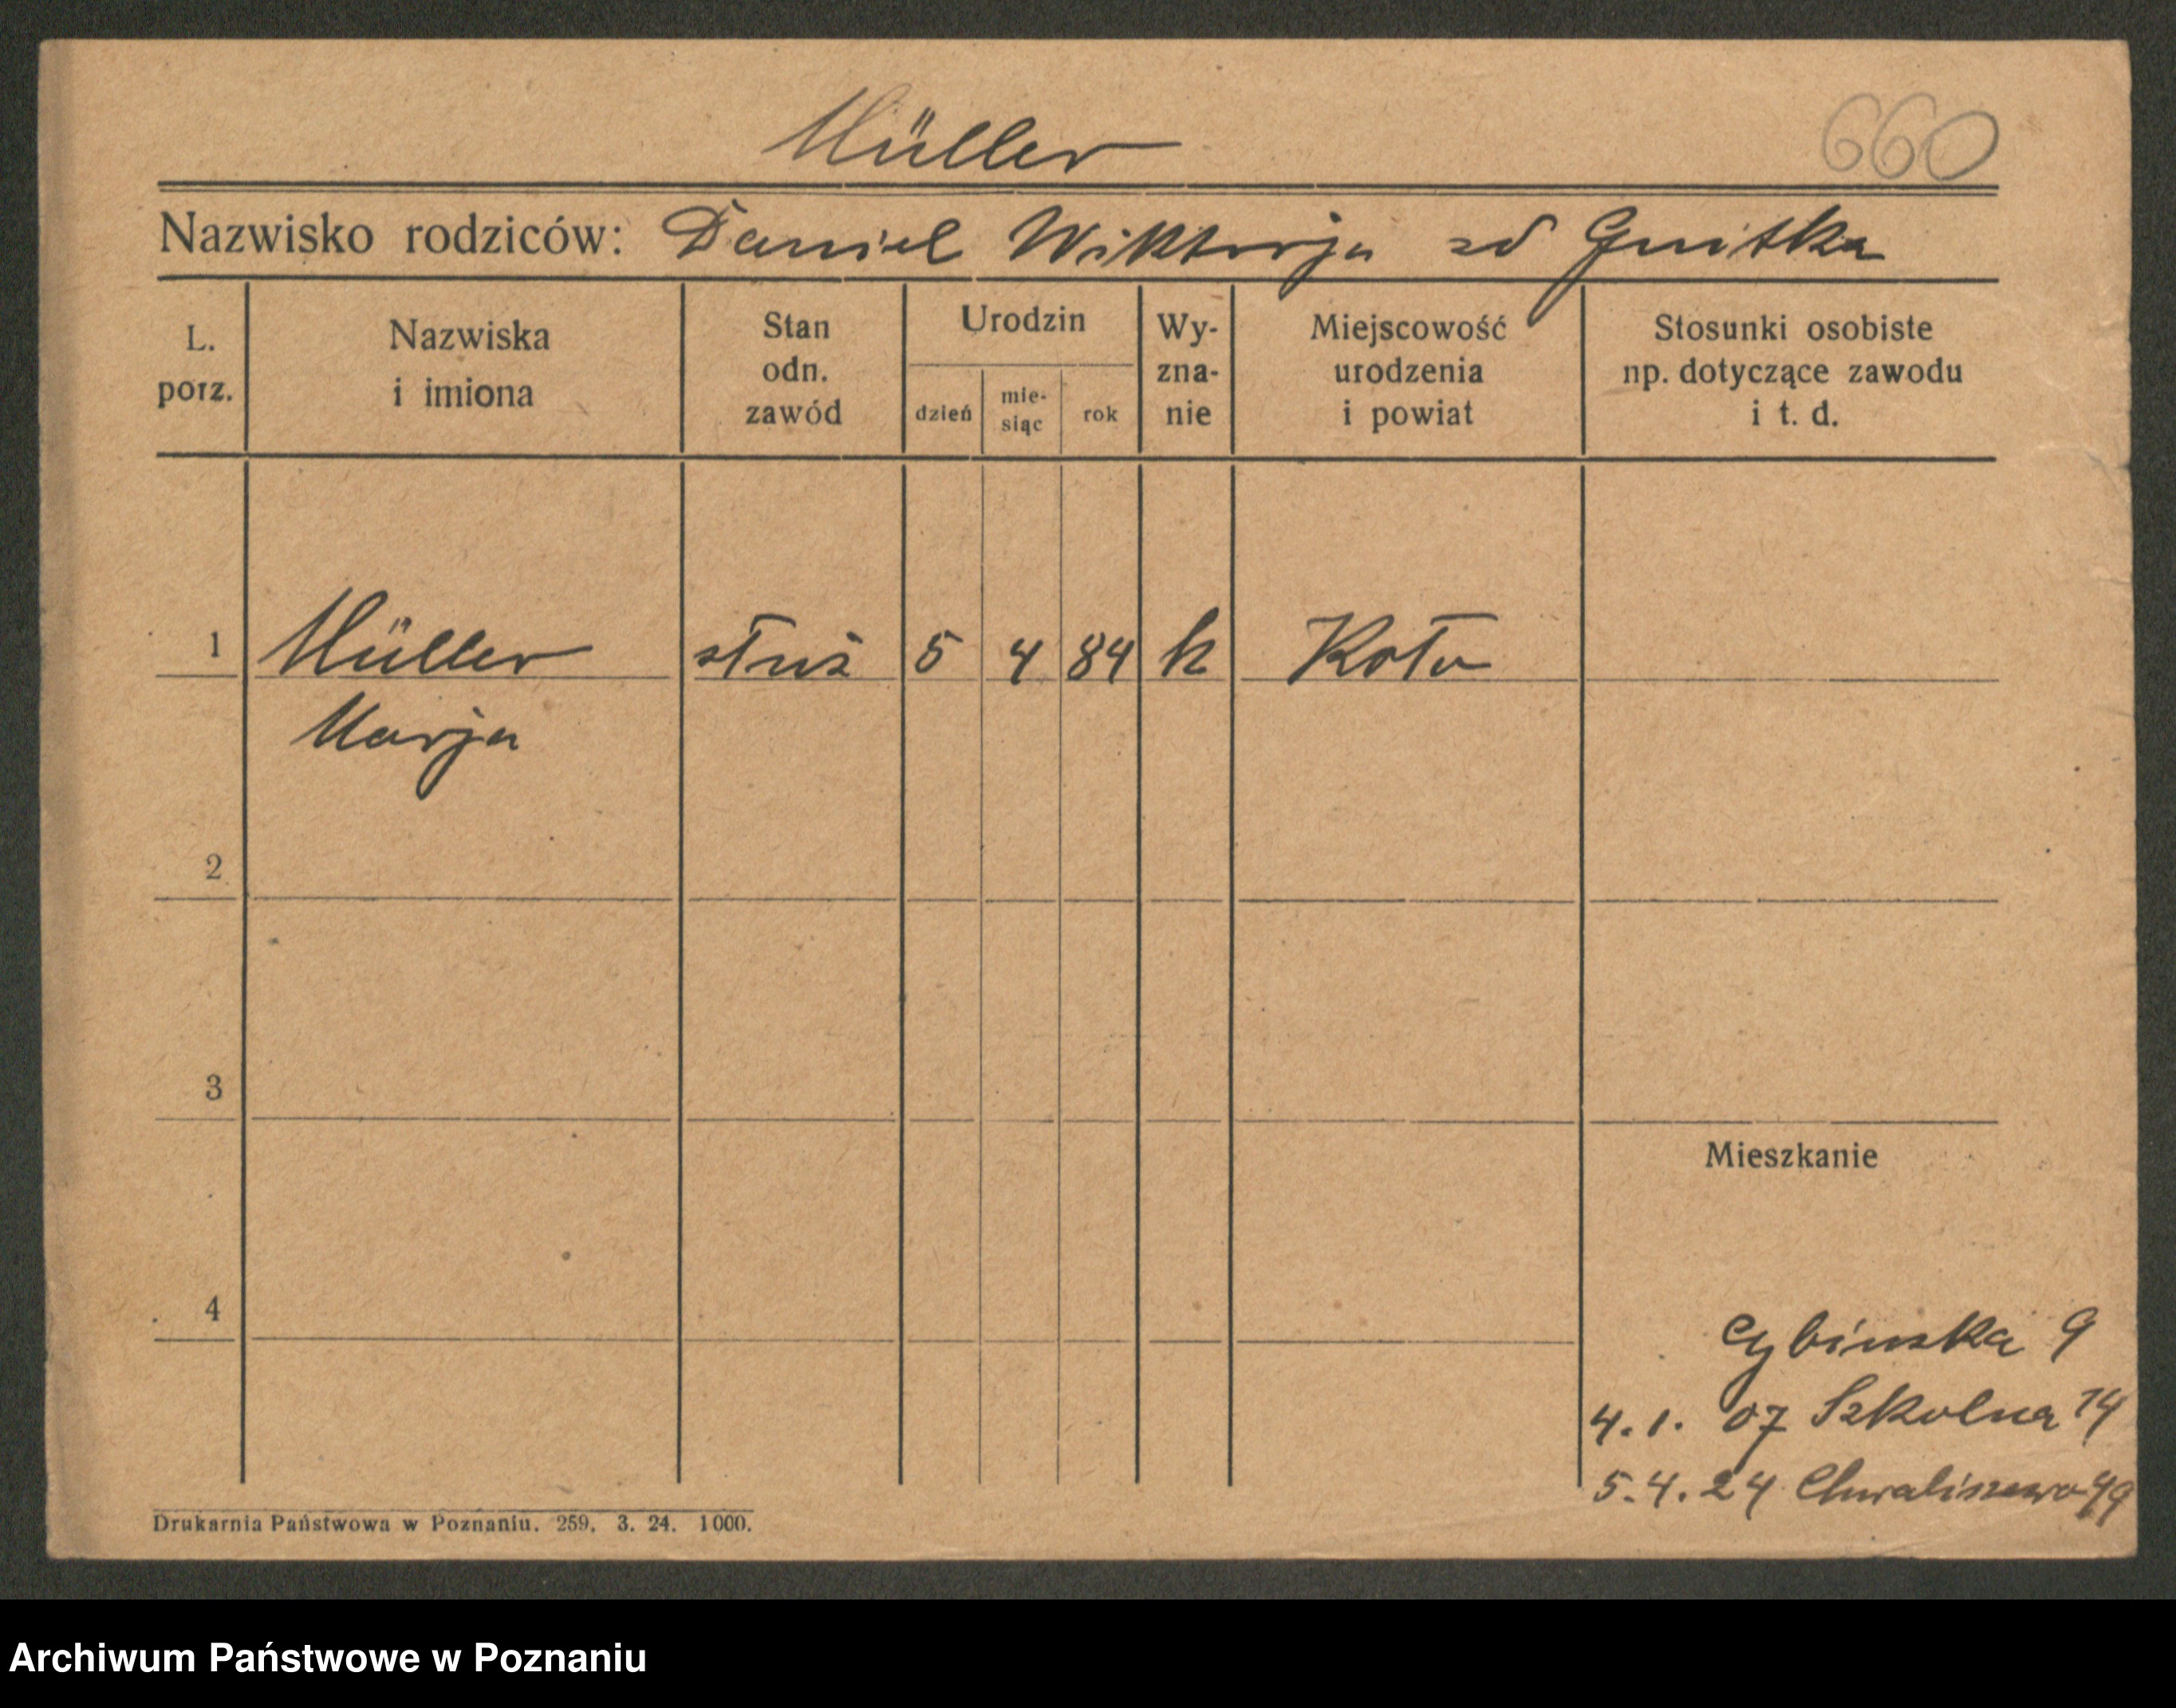 Müller
660
Nazwisko rodziców: Daniel Wiktorja zd Gnitka
L. porz.
Nazwiska i imiona
Stan odn. zawód
Urodzin
dzień
mie- siąc
rok
Wy- zna- nie
Miejscowość urodzenia i powiat
Stosunki osobiste np. dotyczące zawodu i t. d.
1 Müller służ 5 4 84 k Koło
Marja
2
3
Mieszkanie
4
Cybińska 9
4. 1. 07 Szkolna 14
5. 4. 24 Chwaliszewo 49
Drukarnia Państwowa w Poznaniu. 259. 3. 24. 1000.
Archiwum Państwowe w Poznaniu